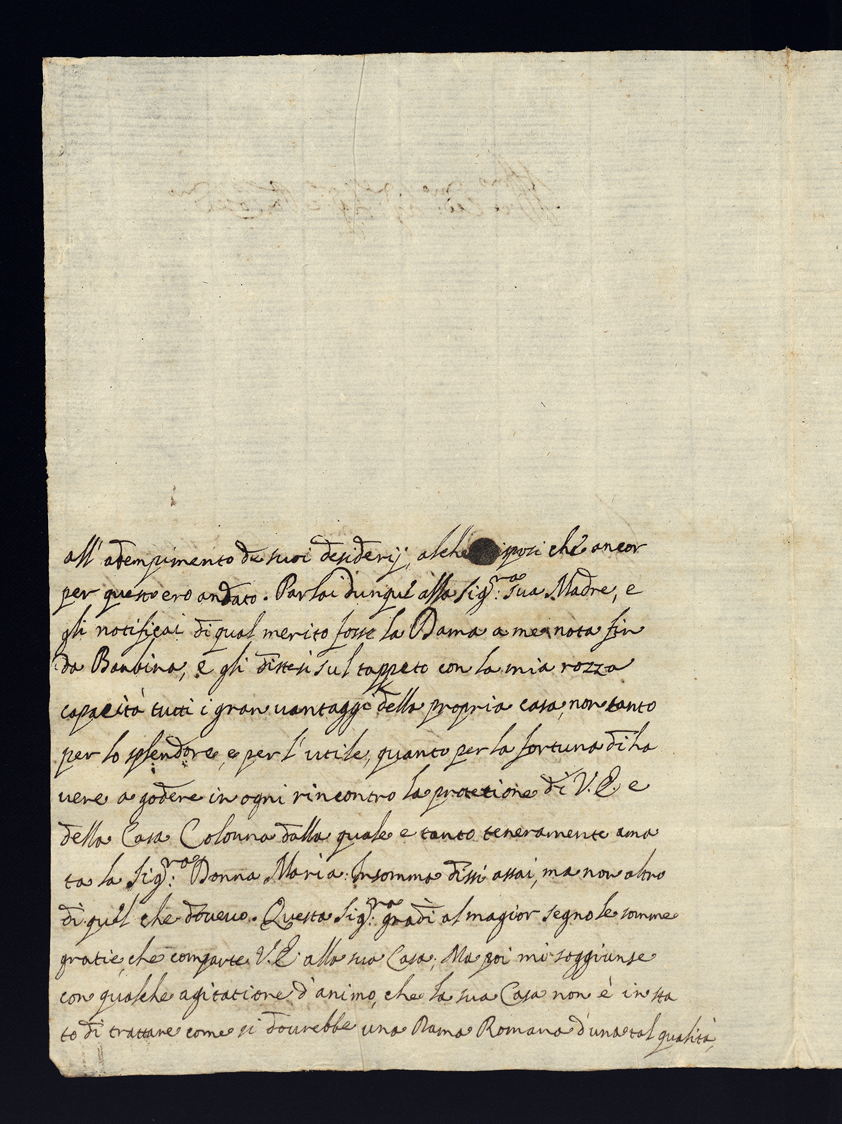 all' adempimento de suoi desiderij, alche risposi che ancor
per questo ero andato. Parlai dunque alla Sig.ra sua Madre, e
gli notificai di qual merito fosse la Dama a me nota fin
da Banbina, e gli distesi sul tappeto con la mia rozza
capacità tutti i gran vantaggi della propria casa, non tanto
per lo splendore, e per l'utile, quanto per la fortuna di ha
uere a godere in ogni rincontro la protetione di V.E. e
della Casa Colonna dalla quale e tanto teneramente ama
ta la Sig.ra Donna Maria. Insomma dissi assai, ma non altro
di quel che doueuo. Questa Sig.ra gradì al magior segno le somme
gratie, che comparte V.E. alla sua Casa; Ma poi mi soggiunse
con qualche agitatione d'animo, che la sua Casa non è in sta
to di trattare come si dourebbe una Dama Romana d'una tal qualità,